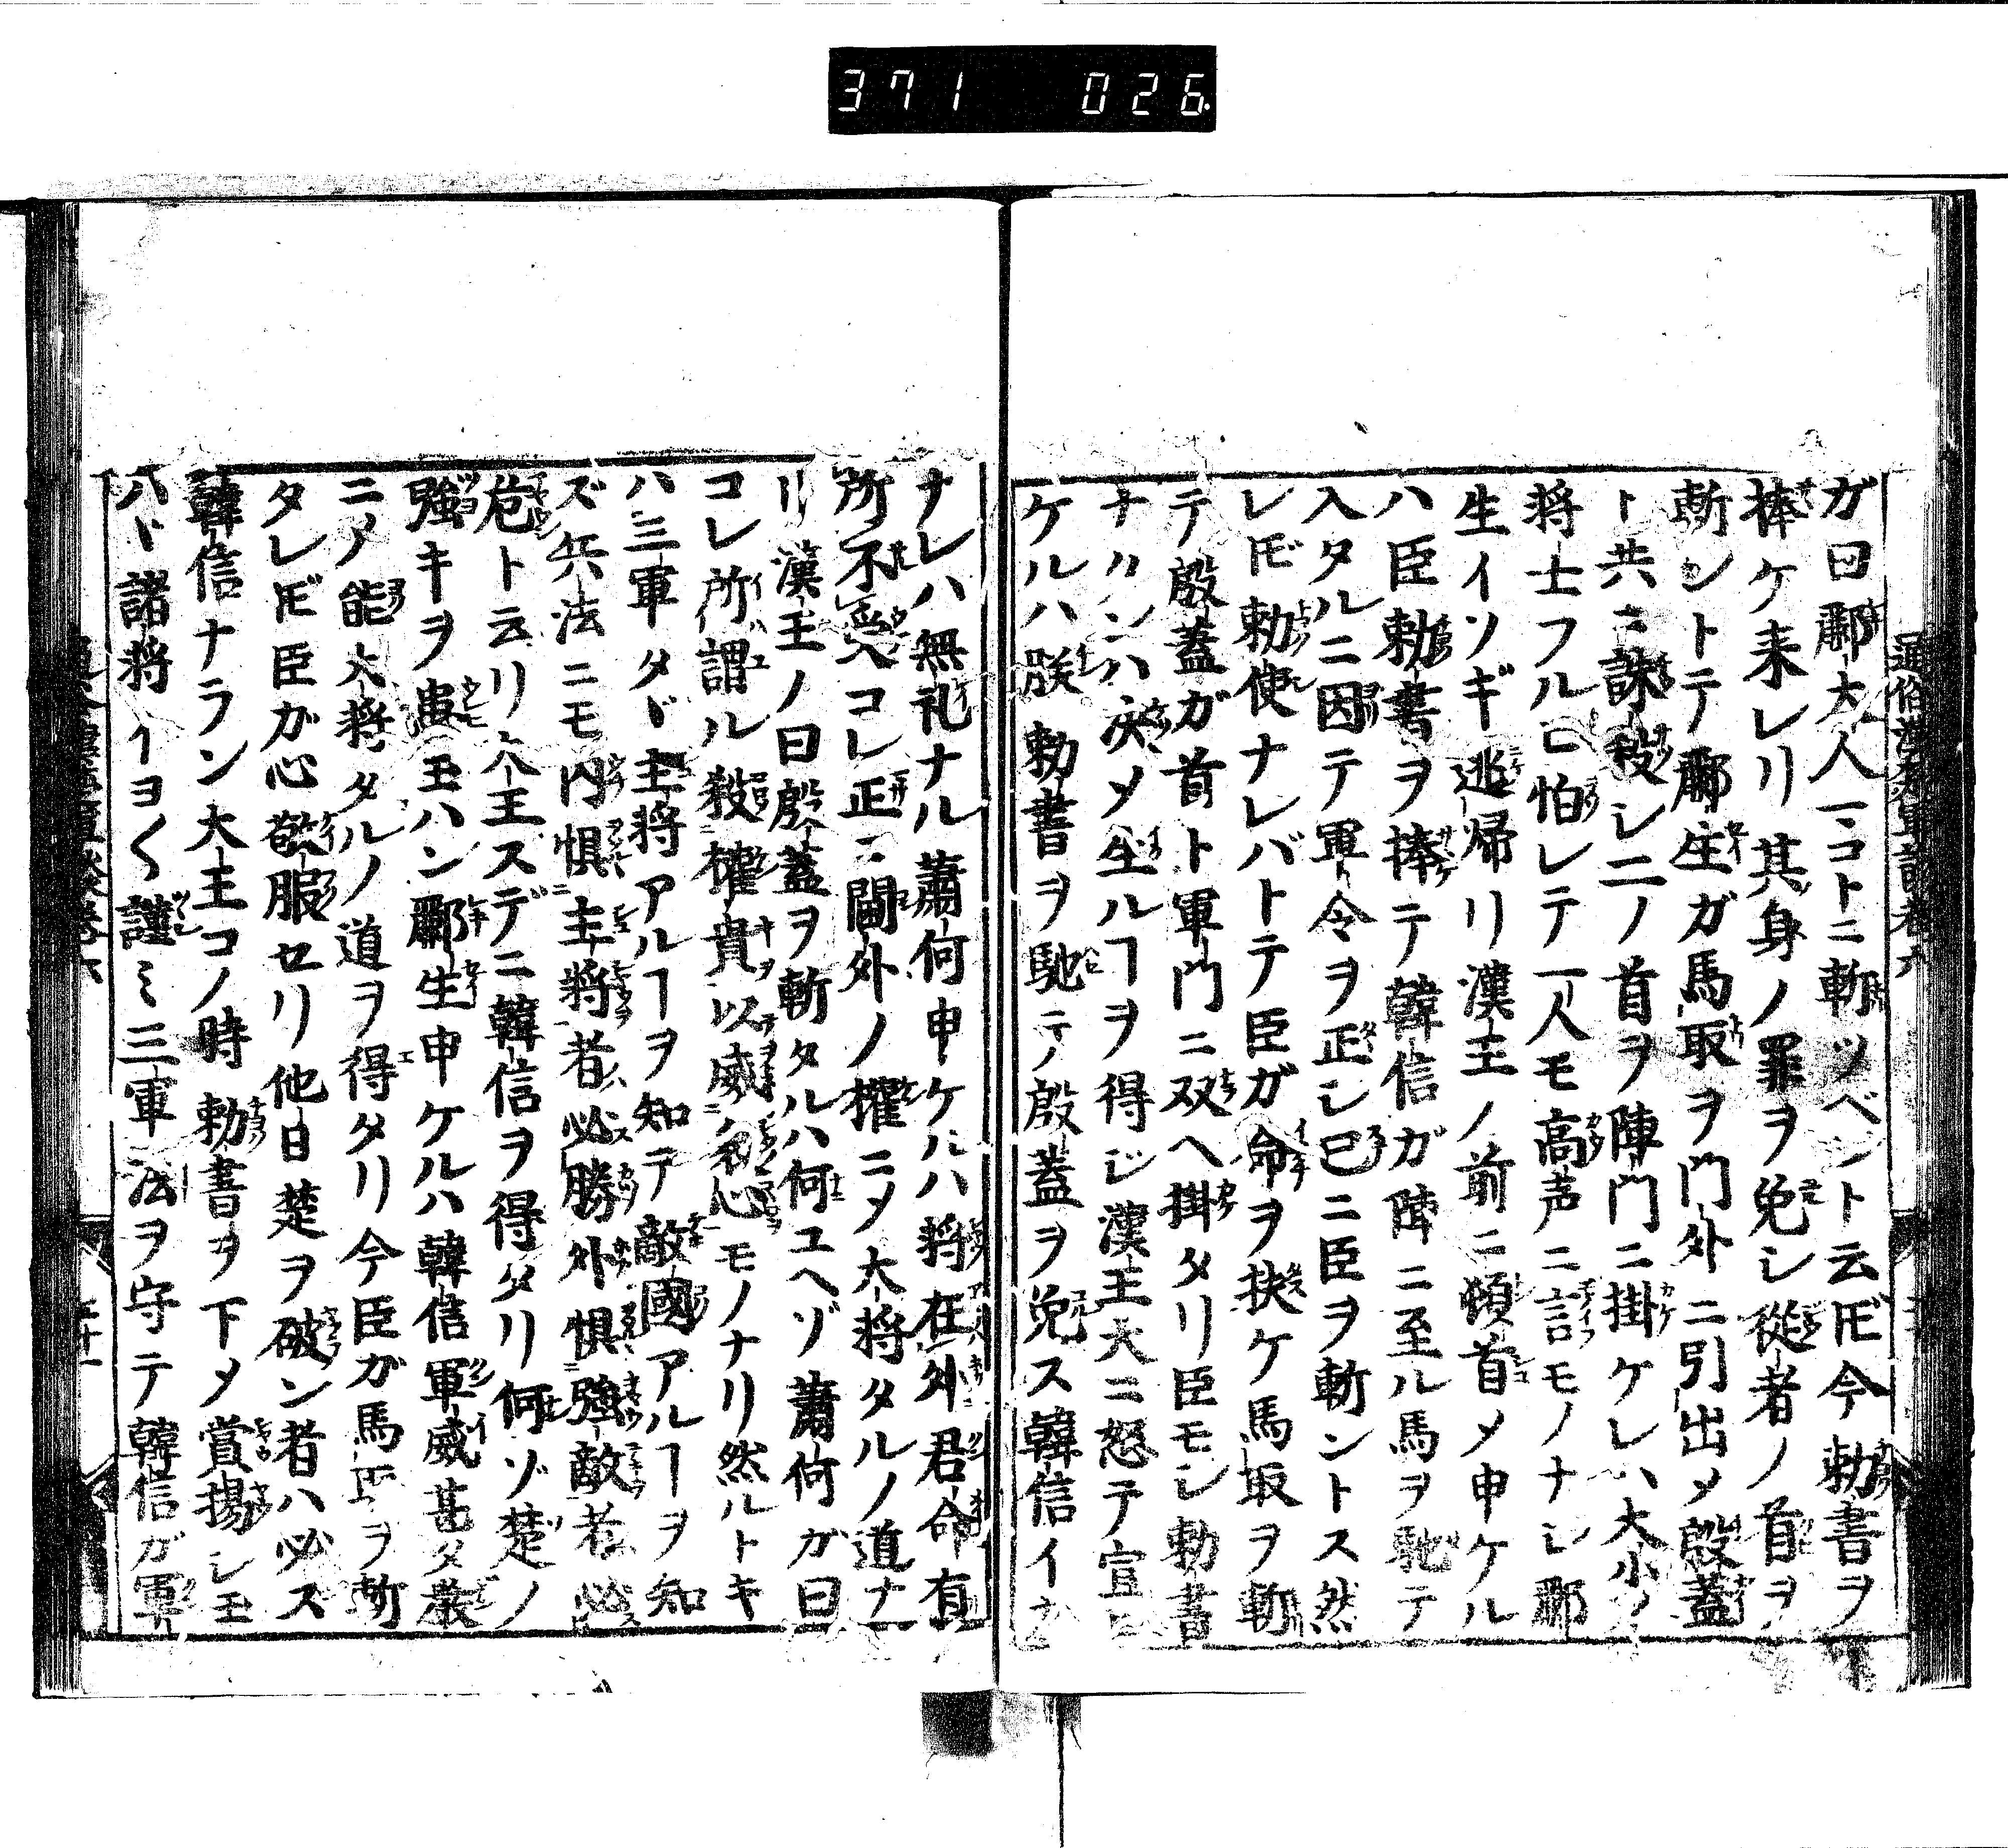 371 026
通俗漢楚軍談巻六
ガ曰酈大人マコトニ斬ツベシト云𪜈今勅書ヲ
捧ケ来レリ其身ノ罪ヲ免シ從者ノ首ヲ
斬ントテ酈生ガ馬取ヲ門外ニ引出メ殷蓋
ト共ニ誅殺シ二ノ首ヲ陣門ニ掛ケレハ大小ノ
将士フルヒ怕レテ一人モ高声ニ言モノナシ酈
生イソギ逃帰リ漢王ノ前ニ頓首メ申ケル
ハ臣勅書ヲ捧テ韓信ガ陣ニ至ル馬ヲ馳テ
入タルニ因テ軍令ヲ正シ已ニ臣ヲ斬ントス然
レ𪜈勅使ナレバトテ臣ガ命ヲ扶ケ馬取ヲ斬
テ殷蓋ガ首ト軍門ニ双ヘ掛タリ臣モシ勅書
ナクンハ決メ生ルヿヲ得シ漢王大ニ怒テ宣ヒ
ケルハ朕勅書ヲ馳テ殷蓋ヲ免ス韓信イカ
ナレハ無礼ナル蕭何申ケルハ将在外君命有
所不受ハコレ正ニ閫外ノ權ニメ大将タルノ道ナ
リ漢王ノ曰殷蓋ヲ斬タルハ何ユヘゾ蕭何ガ曰
コレ所謂ル殺權貴以威衆心モノナリ然ルトキ
ハ三軍タヾ主将アルヿヲ知テ敵國アルヿヲ知
ズ兵法ニモ内惧主将者必勝外惧強敵者必
危ト云リ大王スデニ韓信ヲ得タリ何ゾ楚ノ
強キヲ患玉ハン酈生申ケルハ韓信軍威甚タ嚴
ニノ能大将タルノ道ヲ得タリ今臣ガ馬取ヲ斬
タレ𪜈臣ガ心欲服セリ他日楚ヲ破ン者ハ必ス
韓信ナラン大王コノ時勅書ヲ下メ賞揚シ玉
ハヾ諸将イヨ〱謹ミ三軍法ヲ守テ韓信ガ軍